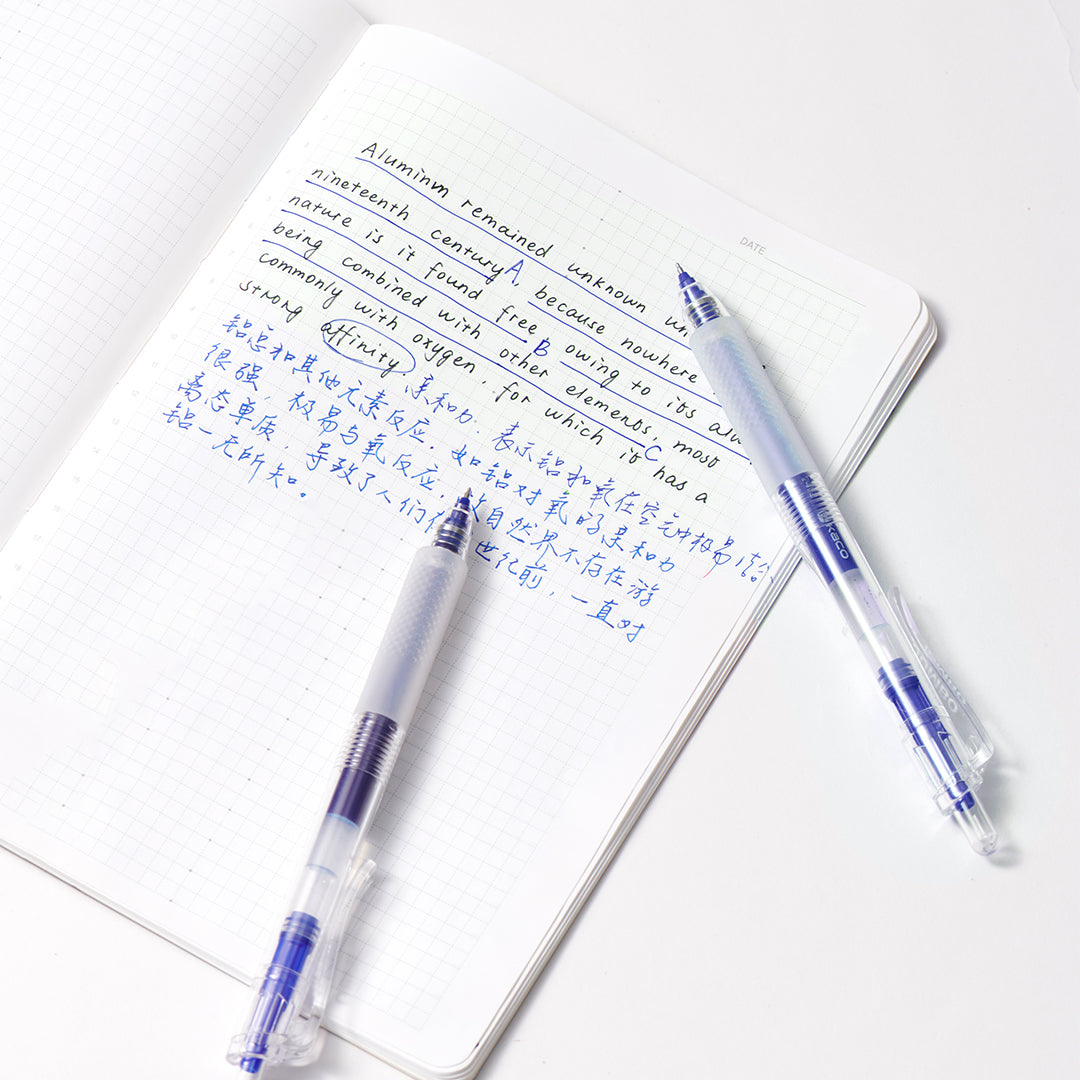 DATE
Aluminm remained unknown un
nineteenth century A, because nowhere
nature is it found free B owing to its alw
being combined with other elements, most C
commonly with oxygen, for which it has a
strong affinity.
亲和力. 表示铝和氧在空气中极易结
铝总和其他元素反应, 如铝对氧的亲和力
很强, 极易与氧反应, 自然界不存在游
离态单质, 导致了人们 世纪前, 一直对
铝一无所知。
kaco